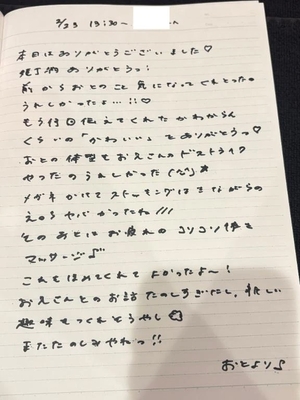 3/23 13:30〜
本日はありがとうございました♡
差し入れ ありがとうっ!
前からおとのこと気になってくれとったの
うれしかったよ…!!♡
もう何回使えてくれたかわからん
くらいの「かわいい」もありがとうっ♡
おとの体型もお兄さんのドストライク
やったのうれしかった(^^)
メガネかけてストッキングはきながらの
えっちヤバかったね///
そのあとにお疲れのコリコリ体を
マッサージ♪
これもほめてくれてよかったよ〜!
お兄さんとのお話たのしすぎたし、新しい
趣味もつくれとうやし
またたのしみやねっ!!
おとより♪